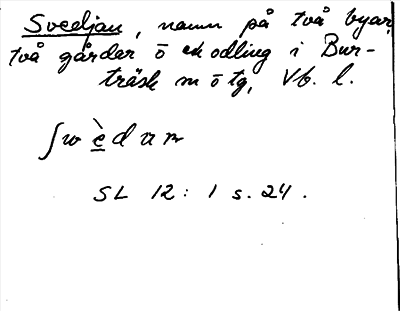 Svedjan, namn på två byar,
två gårdar o en odling i Bur-
träsk m o tg, Vb. l.
ʃwèdan
SL 12: 1 s. 24.